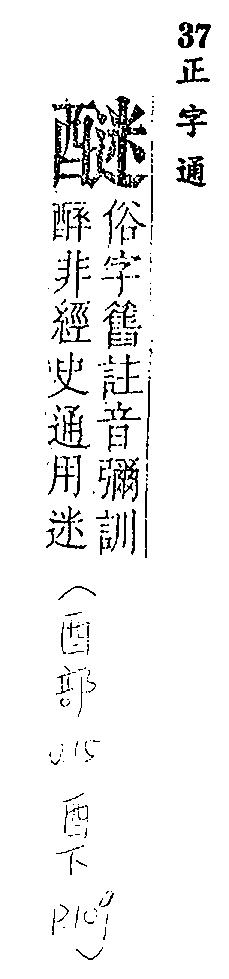 37
正字通
醚
俗字舊註音彌訓
醉非經史通用迷
(酉部
v.15
酉下
p.109)